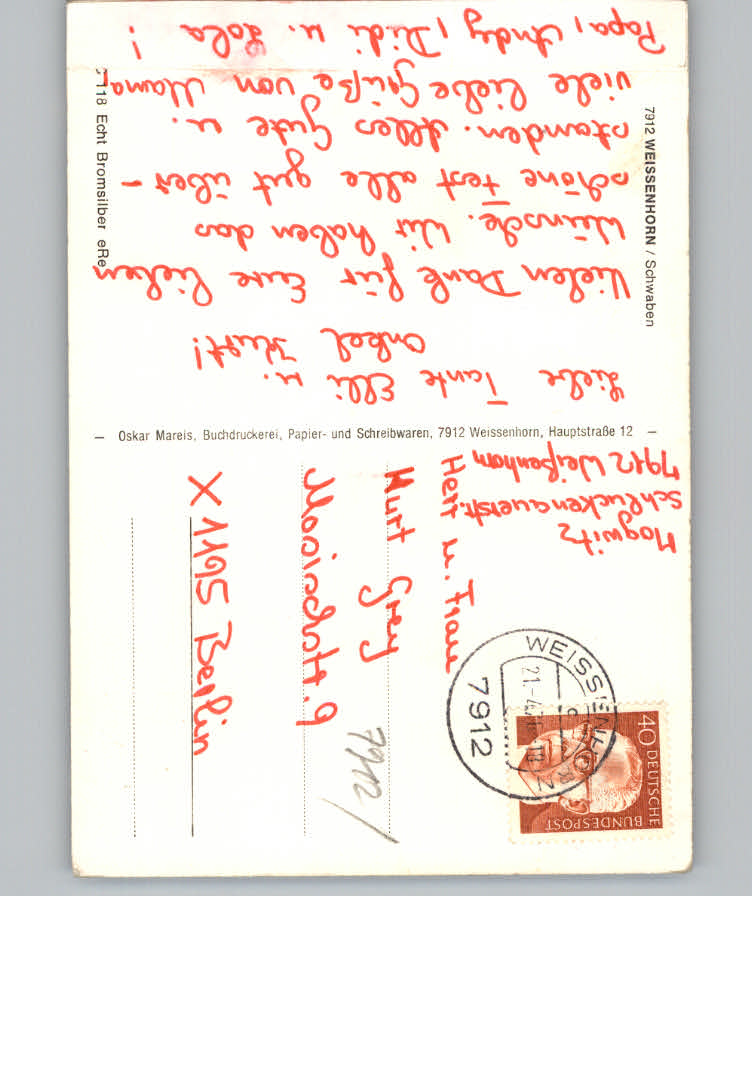 Liebe Tante Elli u.
Onkel Kurt!
Vielen Dank für Eure lieben
Wünsche. Wir haben das
schöne Fest alle gut über-
standen. Alles Gute u.
viele liebe Grüße von Mama
Papa, Andy, Didi u. Lola!
7912 WEISSENHORN / Schwaben
118 Echt Bromsilber eRe
– Oskar Mareis, Buchdruckerei, Papier- und Schreibwaren, 7912 Weissenhorn, Hauptstraße 12 –
Mogwitz
Schluckenauerstr.
7912 Weißenhorn
Herr u. Frau
Kurt Grey
9
X 1195 Berlin
7912/
WEISSENHORN
7912
40 DEUTSCHE
BUNDESPOST